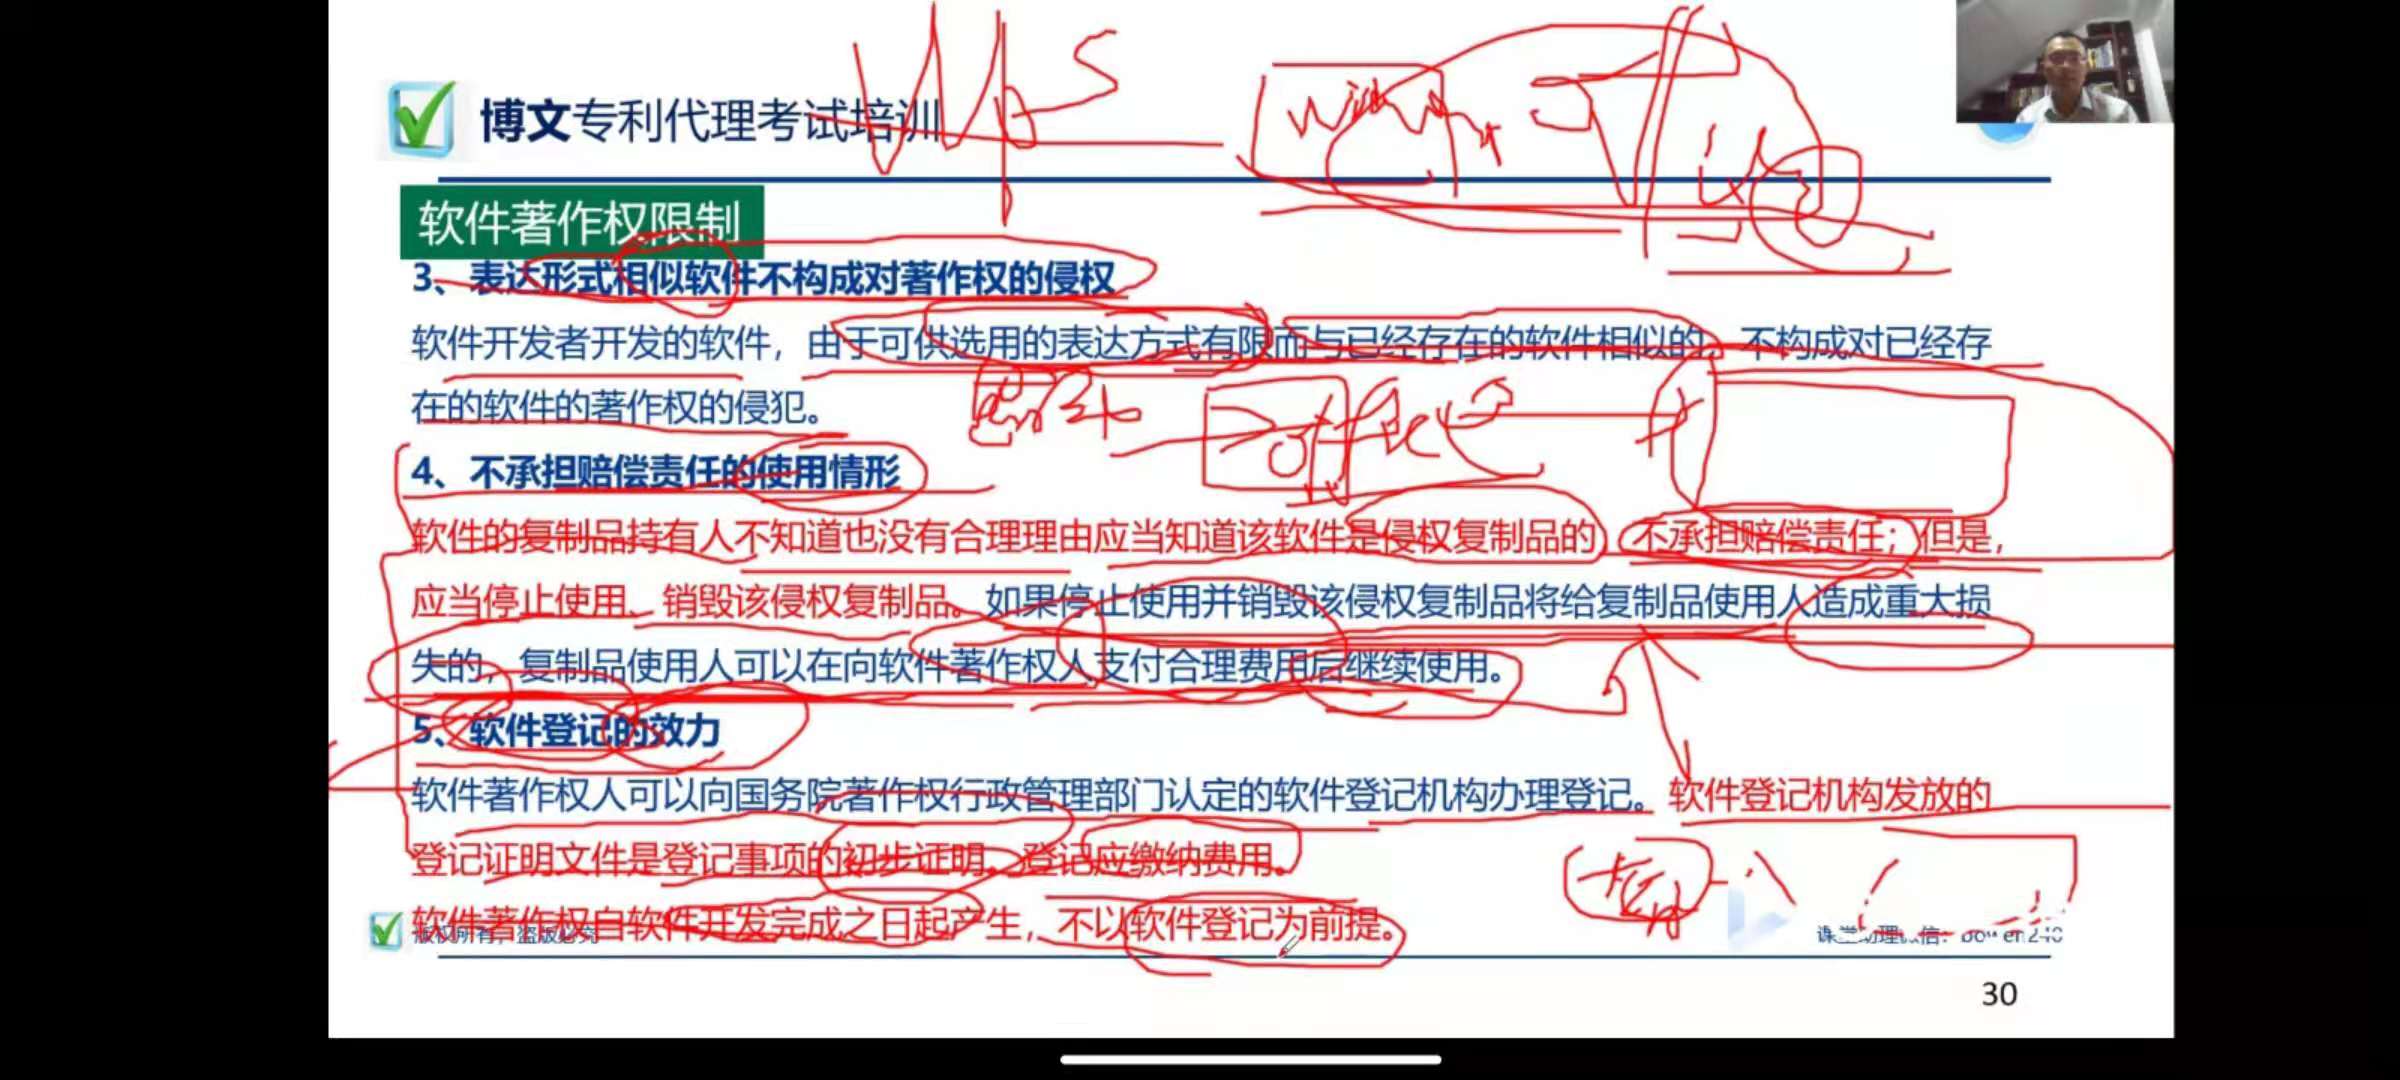 博文专利代理考试培训
软件著作权限制
3、表达形式相似软件不构成对著作权的侵权
软件开发者开发的软件，由于可供选用的表达方式有限而与已经存在的软件相似的，不构成对已经存
在的软件的著作权的侵犯。
4、不承担赔偿责任的使用情形
软件的复制品持有人不知道也没有合理理由应当知道该软件是侵权复制品的，不承担赔偿责任；但是，
应当停止使用、销毁该侵权复制品。如果停止使用并销毁该侵权复制品将给复制品使用人造成重大损
失的，复制品使用人可以在向软件著作权人支付合理费用后继续使用。
5、软件登记的效力
软件著作权人可以向国务院著作权行政管理部门认定的软件登记机构办理登记。软件登记机构发放的
登记证明文件是登记事项的初步证明。登记应缴纳费用。
软件著作权自软件开发完成之日起产生，不以软件登记为前提。
版权所有，盗版必究
课堂助理微信：bowen240
30